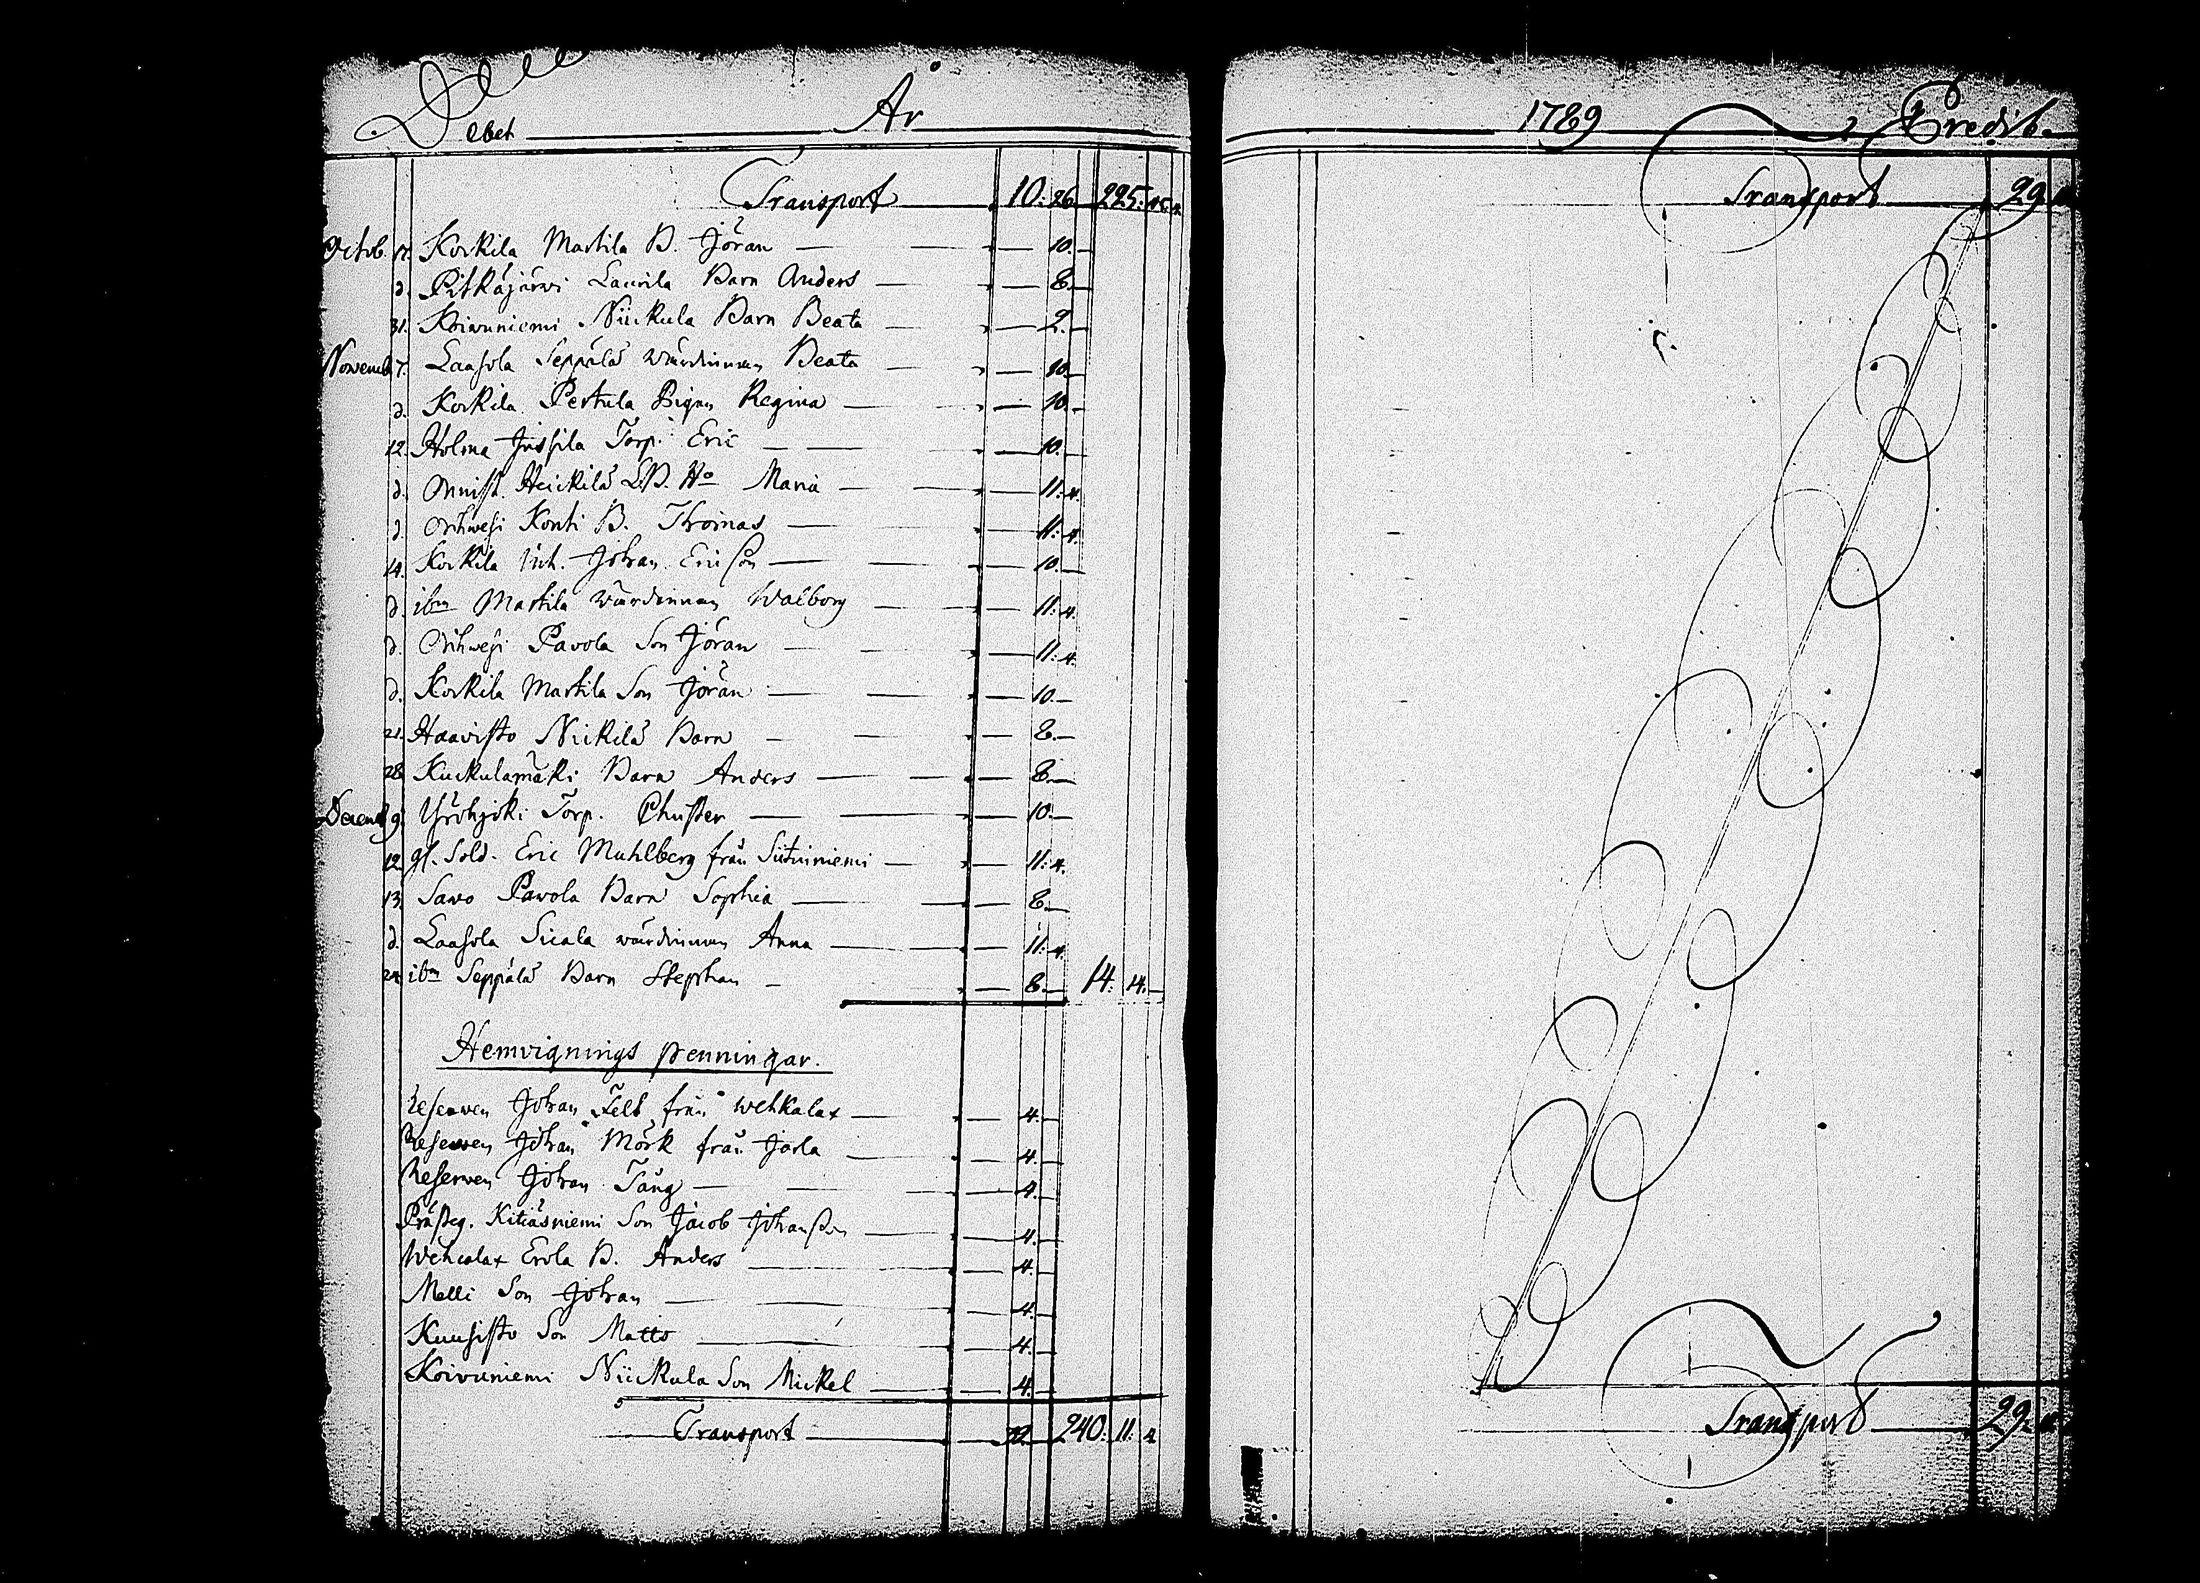 Debet År
Transport 10: 26 225: 15: 4
Octob. 17. Korkila Martila B. Jöran 10.
d. Pitkäjärvi Laurila Barn Anders 8.
31. Koivuniemi Niickula Barn Beata 2.
Novemb 7. Laasola Seppälä wärdinnan Beata 10.
d. Korkila Pertula Pigan Regina 10.
12. Holma Jussila Torp. Eric 10.
d. Onnist. Heickilä L.B. Ho Maria 11: 4.
d. Orihwesi Konti B. Thomas 11: 4.
14. Korkila Inh. Johan Ericsson 10.
d. ibm Martila wärdinnan Walborg 11: 4.
d. Orihwesi Pavola Son Jöran 11: 4.
d. Korkila Martila Son Jöran 10.
21. Haavisto Niikilä Barn 8.
28. Kuckulamäki Barn Anders 8.
Decemb 9. Yröhjoki Torp. Chuster 10.
12 gl. Sold. Eric Muhlberg från Siituiniemi 11: 4.
13. Savo Pavola Barn Sophia 8.
d. Laasola Sicala wärdinnan Anna 11: 4.
24. ibm Seppälä Barn Stephan 8. 14: 14.
Hemvignings penningar.
Reserven Johan Felt från Wehkalax 4.
Reserven Johan Mörk från Jorla 4.
Reserven Johan Tång 4.
Prästeg. Kitiäsniemi Son Jacob Johansson 4.
Wehcalax Erola B. Anders 4.
Melli Son Johan 4.
Kuusisto Son Matts 4.
Koivuniemi Niickula Son Mickel 4.
Transport 32. 240: 11. 4
1789 Credit
Transport 29.
Transport 29.